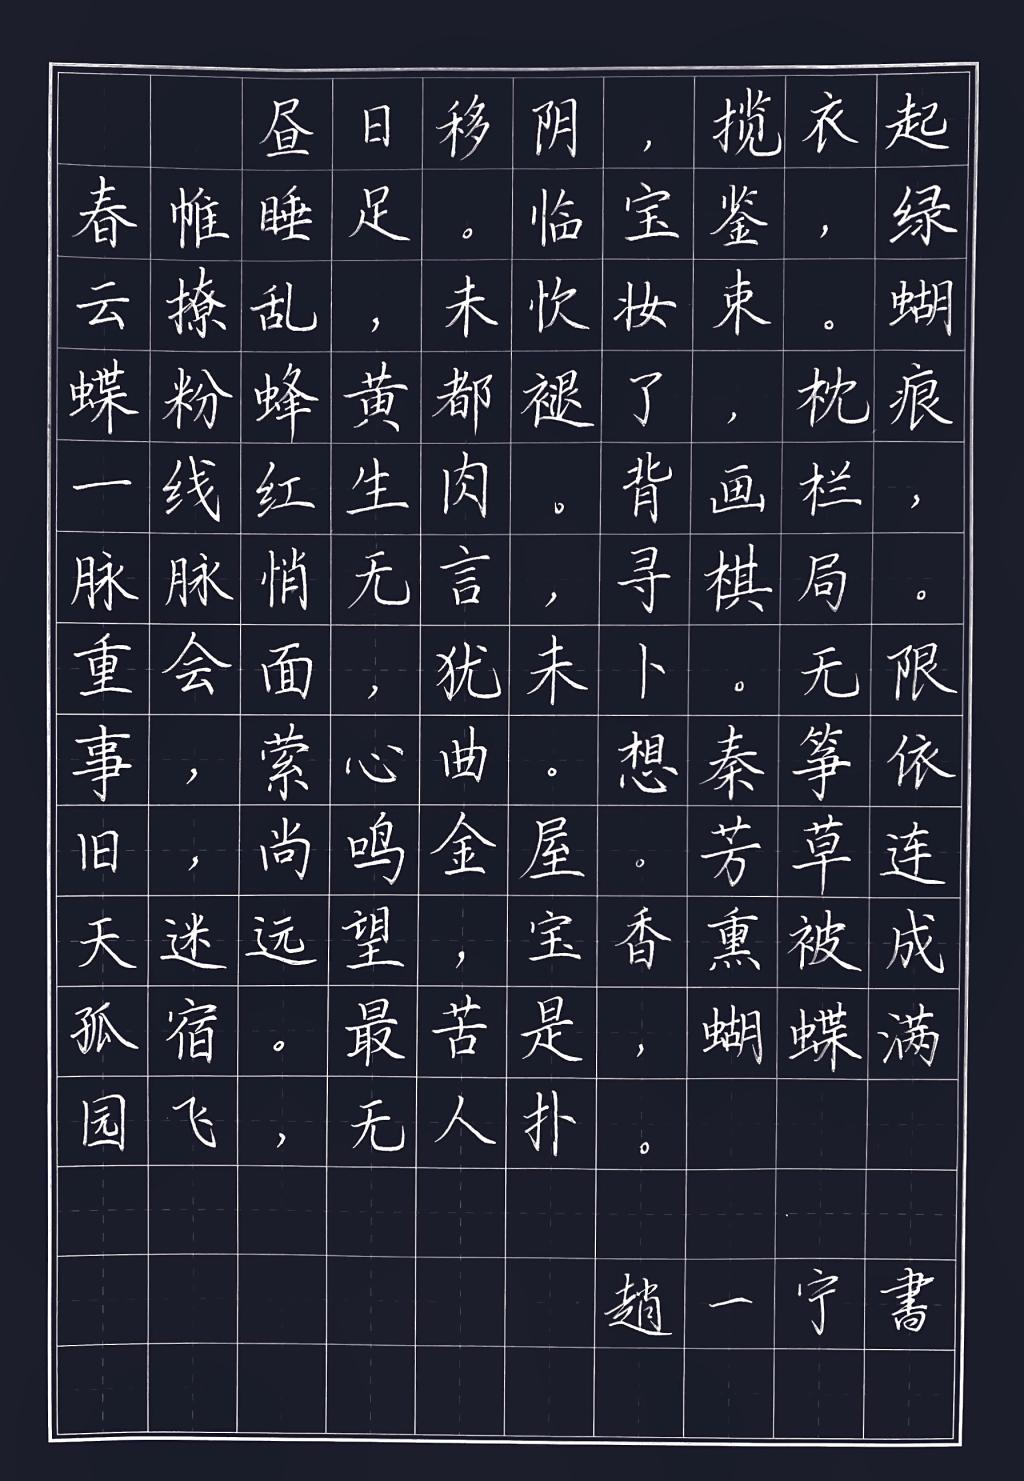 昼日移阴，揽衣起
春帷睡足。临宝鉴，绿
云撩乱，未忺妆束。蝴
蝶粉蜂黄都褪了，枕痕
一线红生肉。背画栏，
脉脉悄无言，寻棋局。
重会面，犹未卜。无限
事，萦心曲。想秦筝依
旧，尚鸣金屋。芳草连
天迷远望，宝香熏被成
孤宿。最苦是，蝴蝶满
园飞，无人扑。
趙一宁書